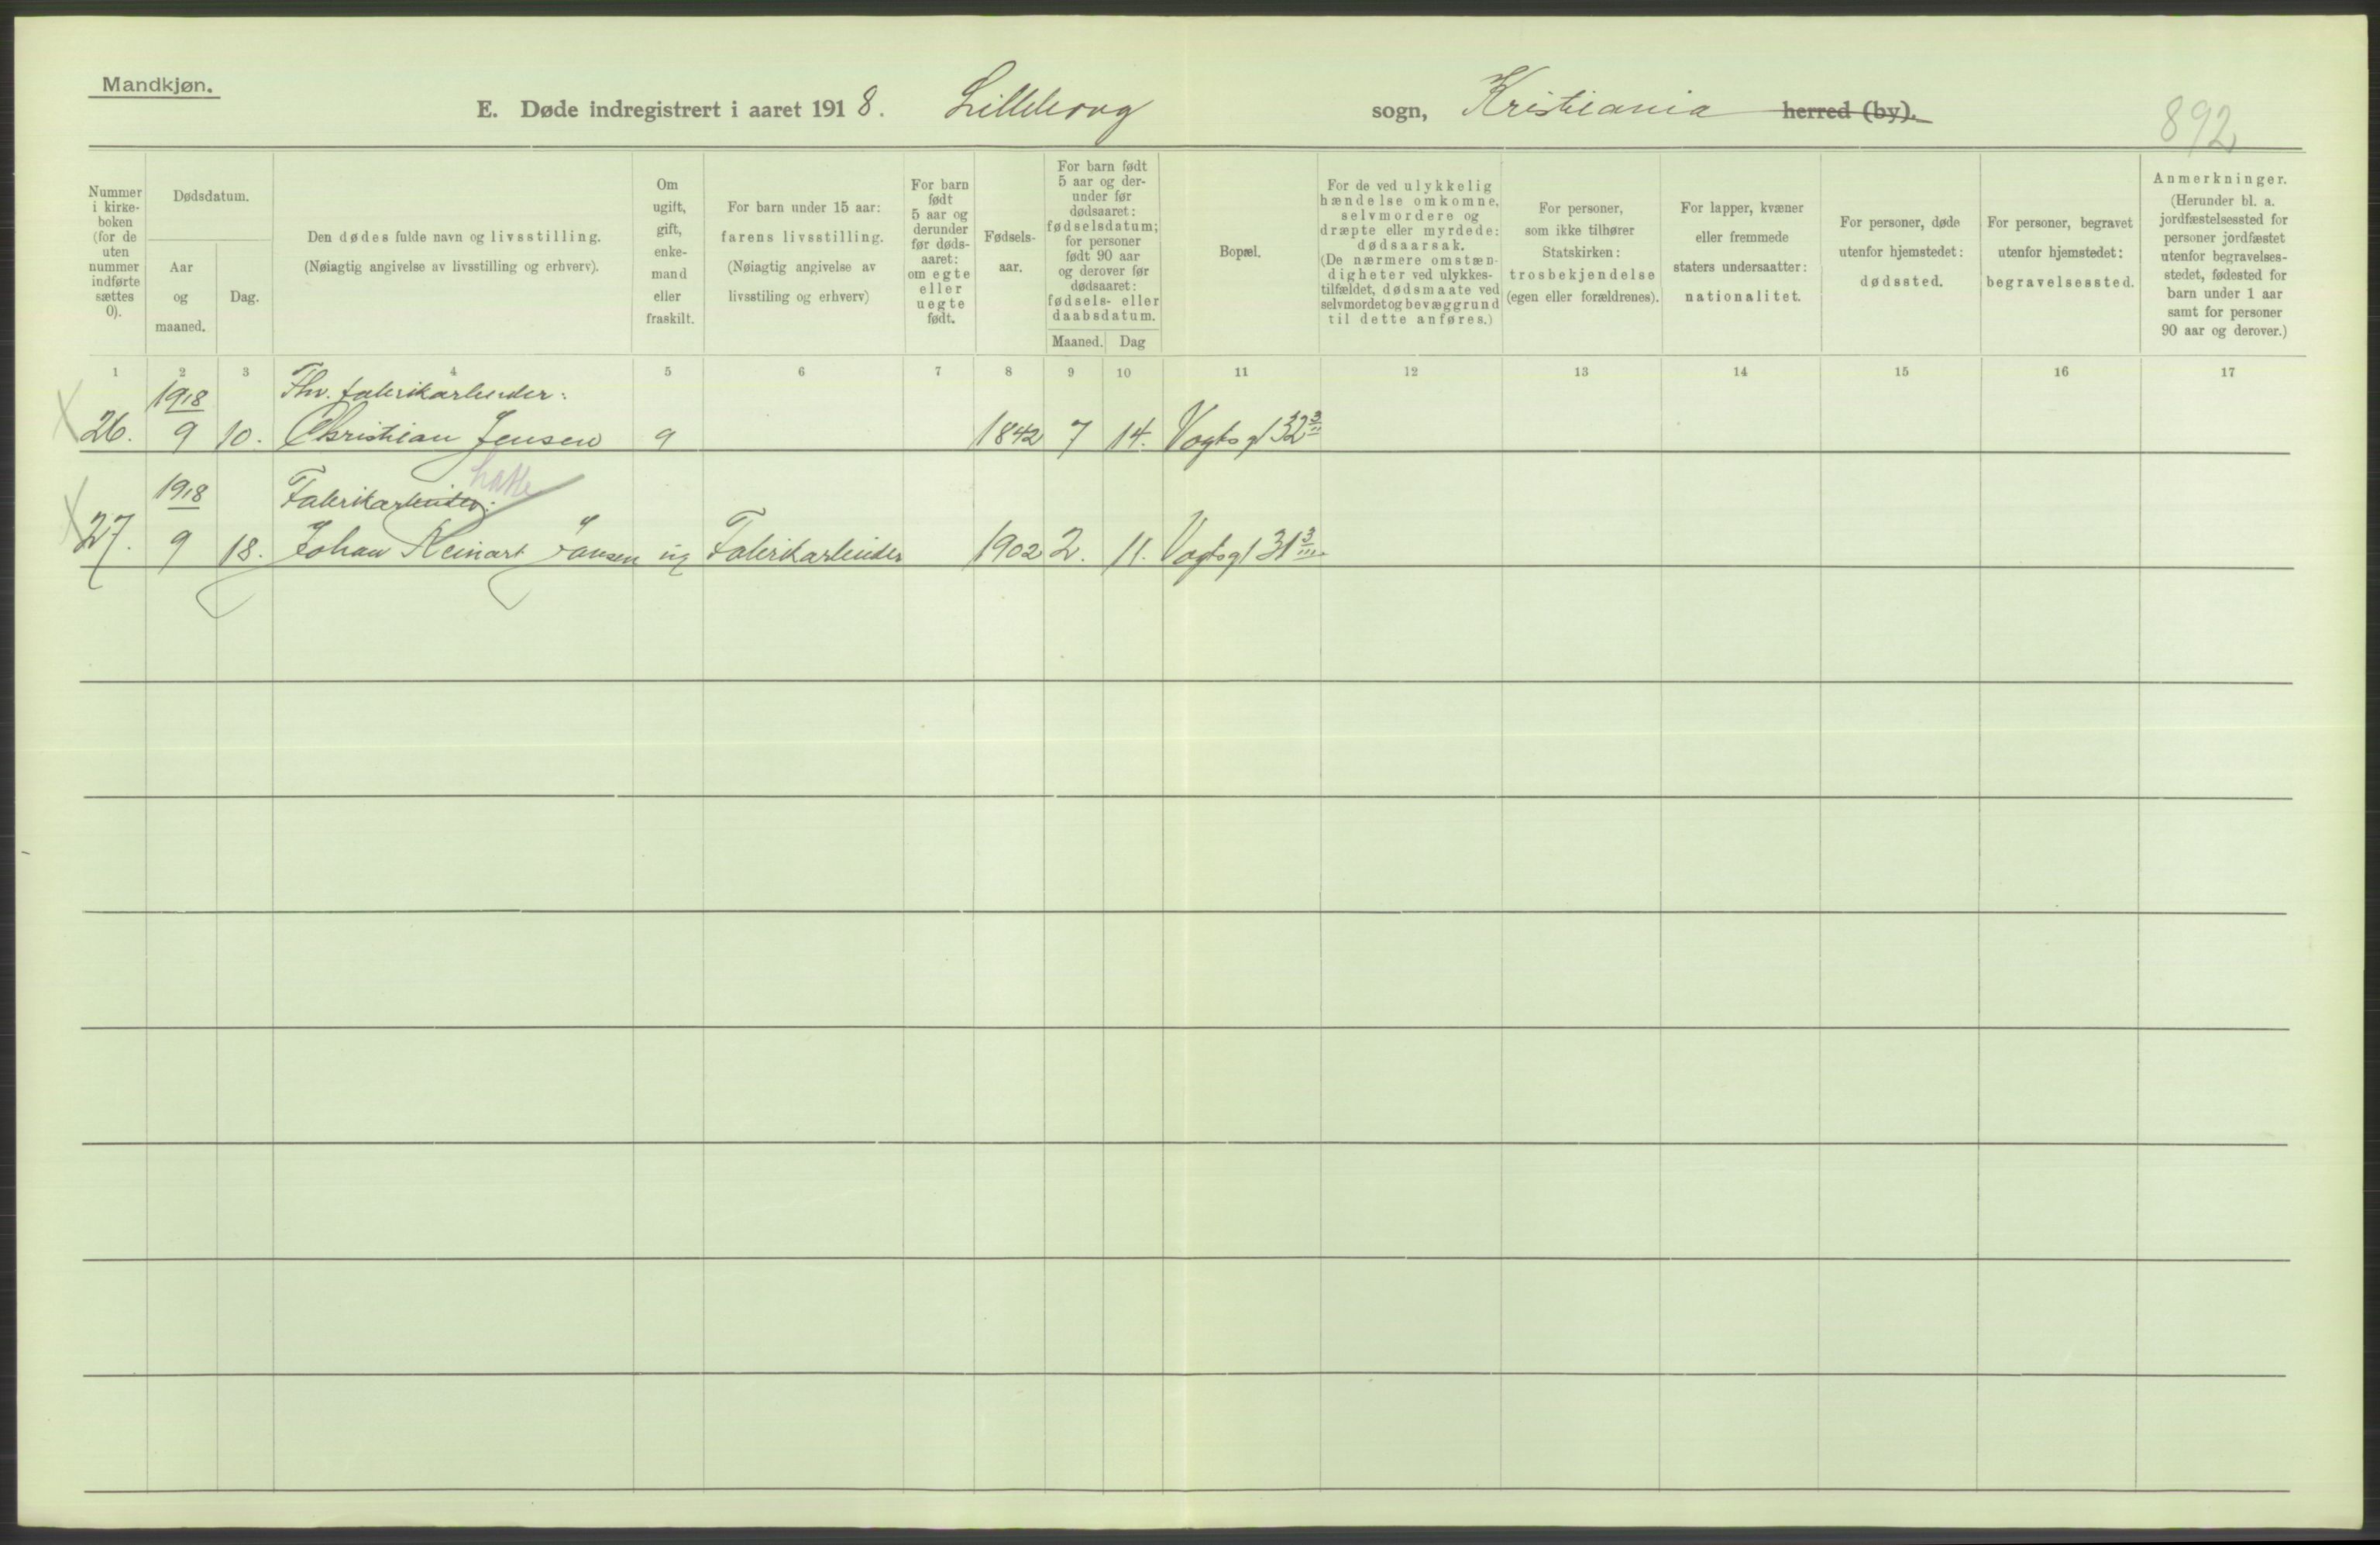 Mandkjøn.
E. Døde indregistrert i aaret 1918. Lilleborg sogn, Kristiania herred (by).
892
Nummer i kirke-boken (for de uten nummer indførte sættes 0).
Dødsdatum.
Aar og maaned.
Dag.
Den dødes fulde navn og livsstilling.
(Nøiagtig angivelse av livsstilling og erhverv).
Om ugift, gift, enke-mand eller fraskilt.
For barn under 15 aar: farens livsstilling.
(Nøiagtig angivelse av livsstiling og erhverv)
For barn født 5 aar og derunder før døds-aaret: om egte eller uegte født.
Fødsels-aar.
For barn født 5 aar og der-under før dødsaaret: fødselsdatum; for personer født 90 aar og derover før dødsaaret: fødsels- eller daabsdatum.
Maaned. Dag
Bopæl.
For de ved ulykkelig hændelse omkomne, selvmordere og dræpte eller myrdede: dødsaarsak.
(De nærmere omstæn-digheter ved ulykkes-tilfældet, dødsmaate ved selvmordet og bevæggrund til dette anføres.)
For personer, som ikke tilhører Statskirken: trosbekjendelse (egen eller forældrenes).
For lapper, kvæner eller fremmede staters undersaatter: nationalitet.
For personer, døde utenfor hjemstedet: dødssted.
For personer, begravet utenfor hjemstedet: begravelsessted.
Anmerkninger.
(Herunder bl. a. jordfæstelsessted for personer jordfæstet utenfor begravelses-stedet, fødested for barn under 1 aar samt for personer 90 aar og derover.)
1 2 3 4 5 6 7 8 9 10 11 12 13 14 15 16 17
1918 Fhv. fabrikarbeider:
26. 9 10. Christian Jensen g 1842 7 14. Vogtsgt 32 3/II
1918 Fabrikarbeider:
27. 9 18. Johan Reinart Jansen ug Fabrikarbeider 1902 2. 11. Vogtsgt 31 3/III